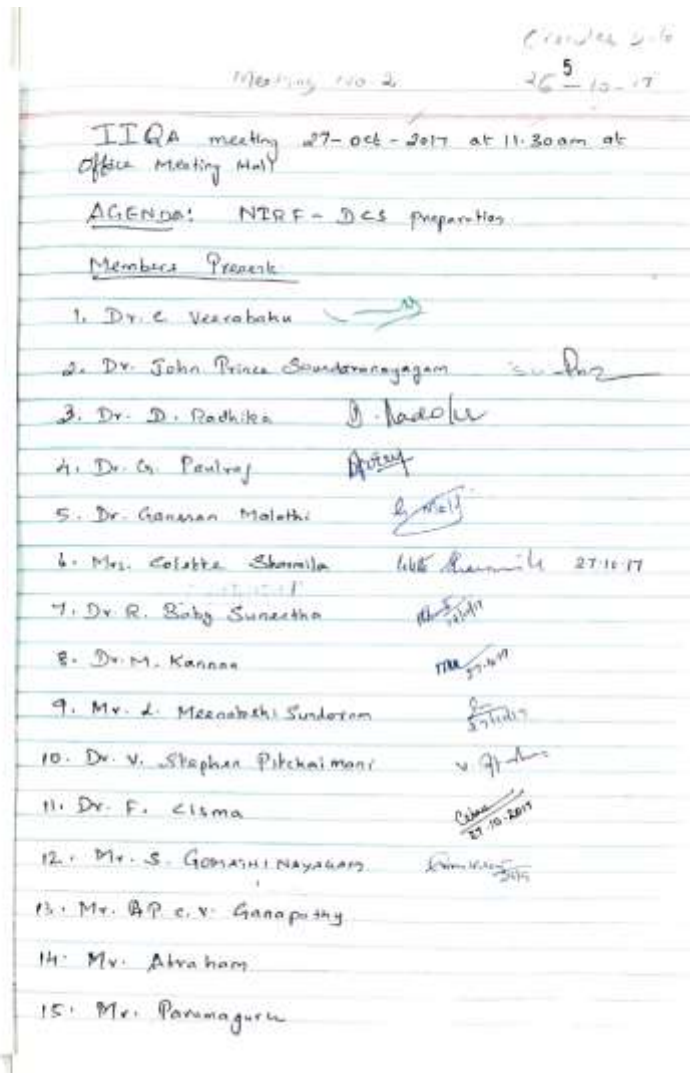 Meeting No. 2
5
26-10-17
IIQA meeting 27-oct-2017 at 11.30am at
Office Meeting Hall
AGENDA: NIRF - DCS preparation
Members Present
1. Dr. C. Veerabahu
2. Dr. John Prince Soundaranayagam
3. Dr. D. Radhika D. Radhika
4. Dr. G. Paulraj
5. Dr. Ganesan Malathi
6. Mrs. Colatte Sharmila 27.10.17
7. Dr R. Baby Suneetha
8. Dr. M. Kannan 27.10.17
9. Mr. L. Meenakshi Sundaram 27/10/17
10. Dr. V. Stephan Pitchaimani
11. Dr. F. Lisma 27.10.2017
12. Mr. S. GOMATHI NAYAGAM
13. Mr. AP. C. V. Ganapathy
14. Mr. Abraham
15. Mr. Paramaguru